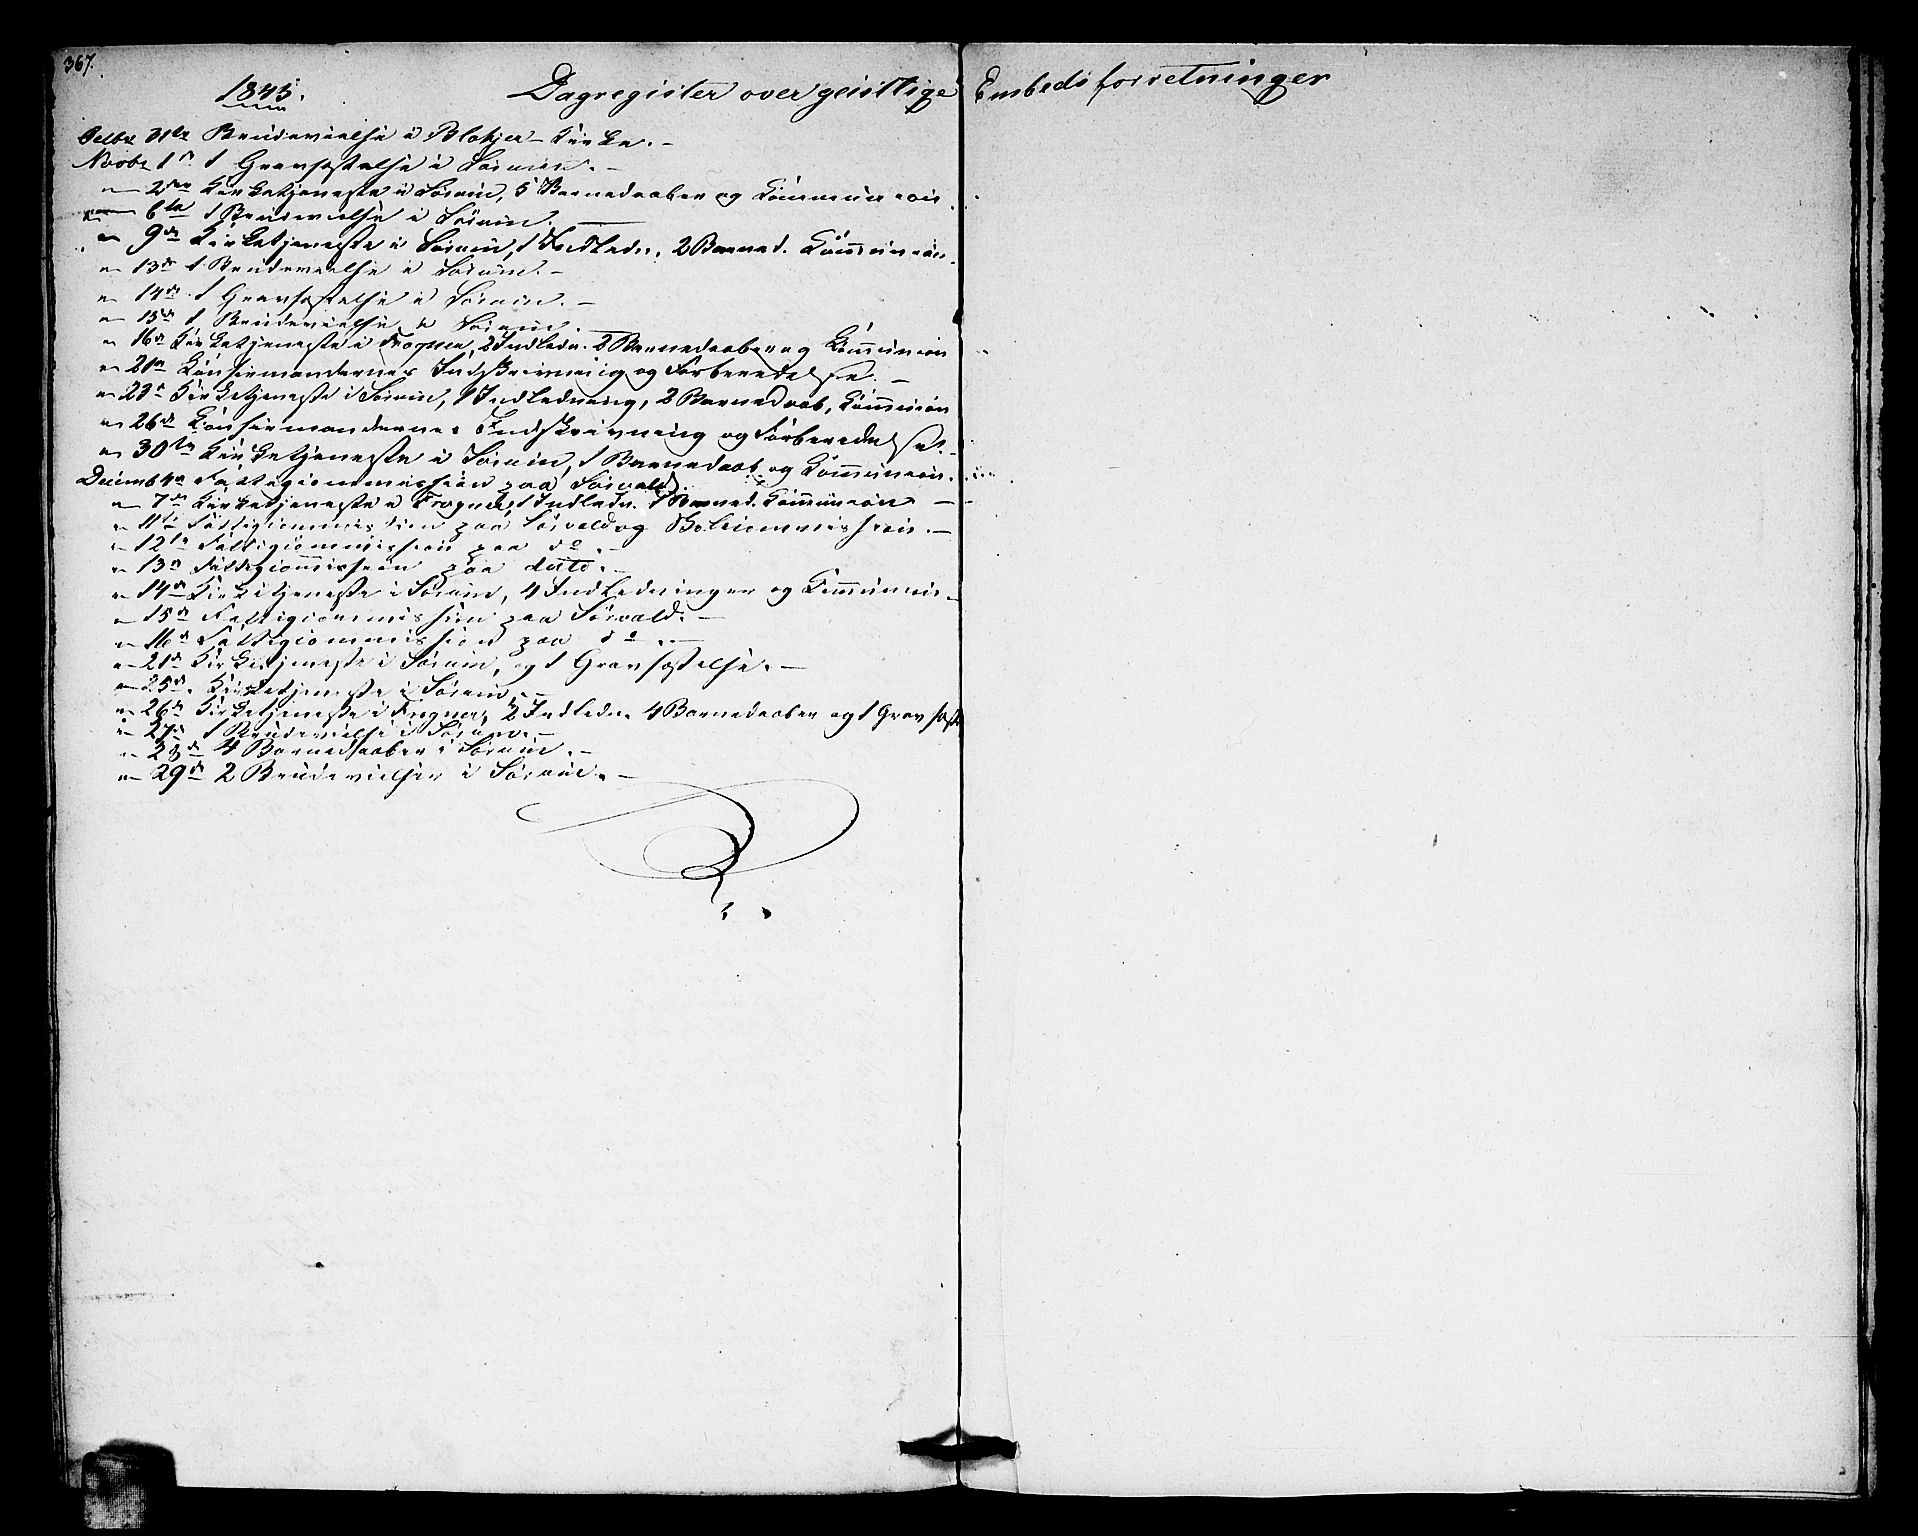 367.
1845. Dagregister over geistlige Embedsforretninger
Octbr 31te Brudevielse i Blakjer Kirke. –
Novbr 1n 1 Gravfæstelse i Sørum. –
" 2den Kirketjeneste i Sørum, 5 Barnedaaber og Communion.
" 6te 1 Brudevielse i Sørum.
" 9de Kirketjeneste i Sørum, 1 Indledn. 2 Barned. Communion.
" 13de 1 Brudevielse i Sørum. –
" 14de 1 Gravfæstelse i Sørum. –
" 15de 1 Brudevielse i Sørum.
" 16de Kirketjeneste i Frogner, 2 Indledn. 2 Barnedaaber og Communion
" 21n Confirmandernes Indskrivning og Forberedelse. –
" 23de Kirketjeneste i Sørum, 1 Indledning, 2 Barnedaab, Communion
" 26de Confirmandernes Indskrivning og Forberedelse. –
" 30te Kirketjeneste i Sørum, 1 Barnedaab og Communion.
Decemb 4n Fattigcommission paa Sørvald.
" 7de Kirketjeneste i Frogner, 1 Indledn. 1 Barned. Communion –
" 11te Fattigcommission paa Sørvald og Skolecommission. –
" 12te Fattigcommission paa do. –
" 13n Fattigcommission paa dito. –
" 14de Kirketjeneste i Sørum, 4 Indledninger og Communion
" 15de Fattigcommission paa Sørvald. –
" 16de Fattigcommission paa do. –
" 21de Kirketjeneste i Sørum, og 1 Gravfæstelse. –
" 25de. Kirketjeneste i Sørum. –
" 26de Kirketjeneste i Frogner, 2 Indledn. 4 Barnedaaber og 1 Gravfæst
" 27de 1 Brudevielse i Sørum. –
" 28de 4 Barnedaaber i Sørum. –
" 29de 2 Brudevielser i Sørum. –